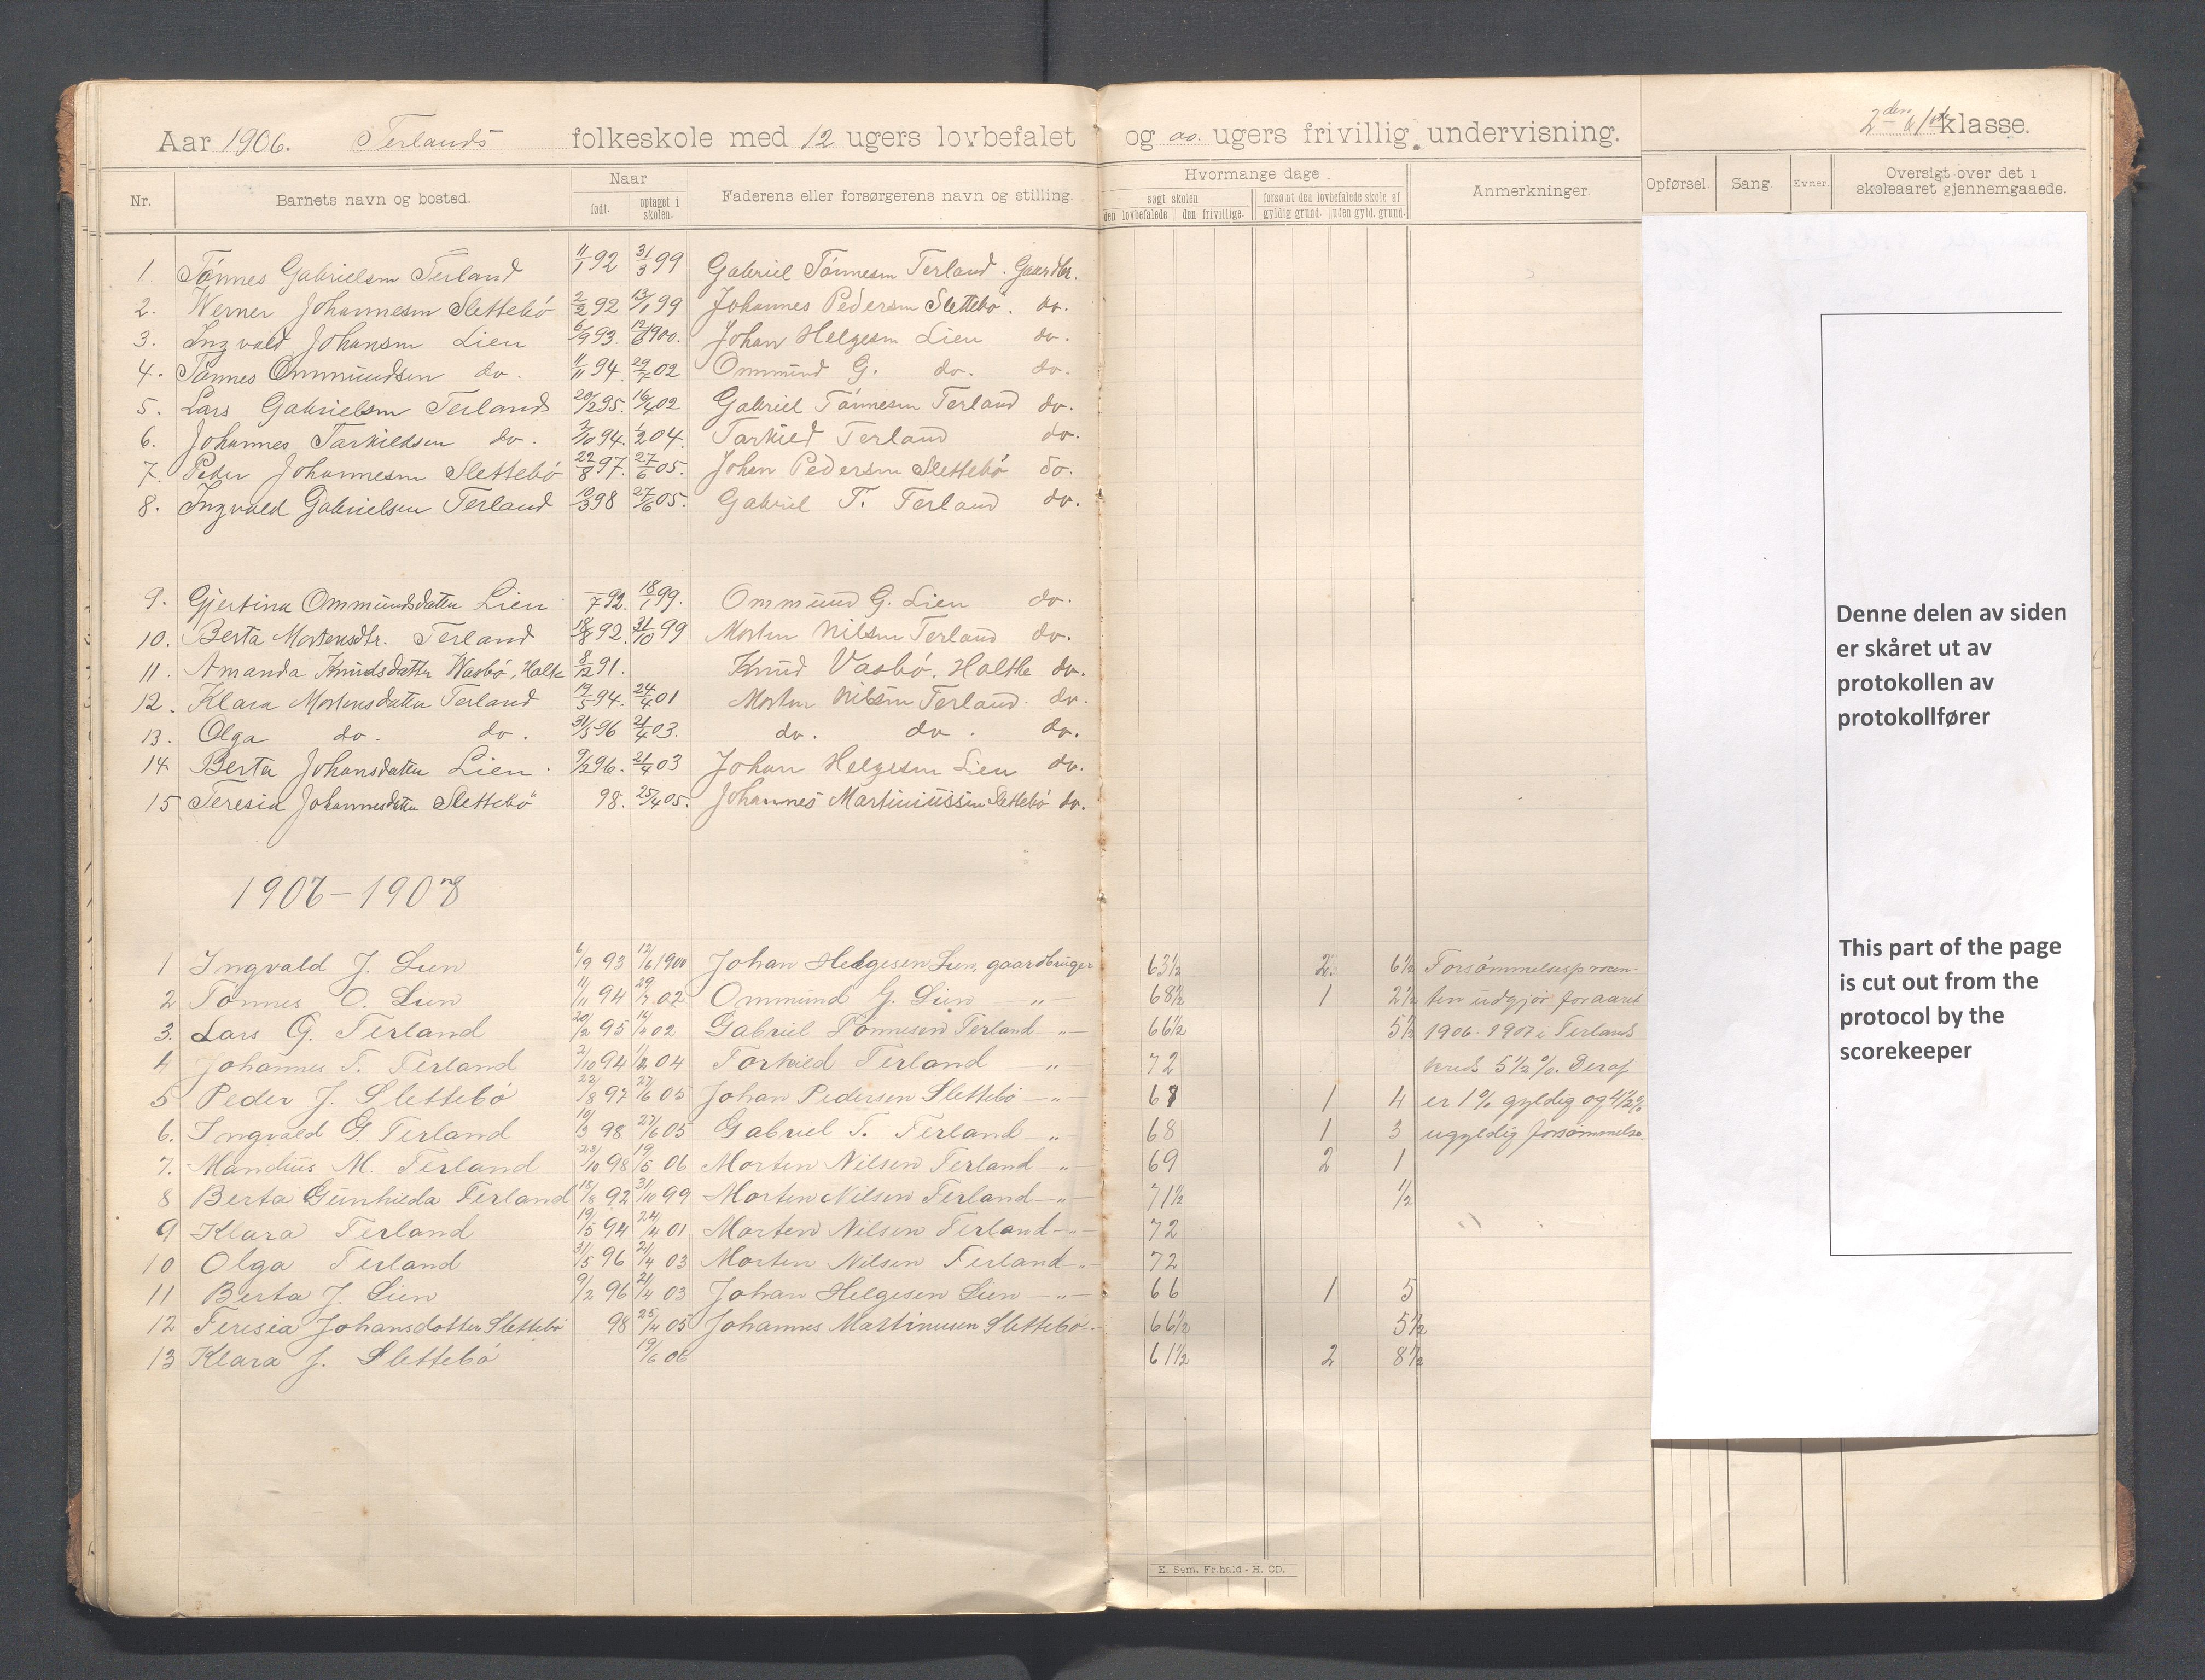 Aar 1906. Terlands folkeskole med 12 ugers lovbefalet og oo. ugers frivillig undervisning. 2den klasse.
Nr. Barnets navn og bosted. Naar født. optaget i skolen. Faderens eller forsørgerens navn og stilling. Hvormange dage. søgt skolen den lovbefalede den frivillige. forsømt den lovbefalede skole af gyldig grund. uden gyld. grund. Anmerkninger. Opførsel. Sang. Evner. Oversigt over det i skoleaaret gjennemgaaede.
1. Tönnes Gabrielsen Terland 11/1 92 31/3 99 Gabriel Tönnesen Terland. Gaardbr.
2. Werner Johannesen Slettebö 2/2 92 13/1 99 Johannes Pedersen Slettebö. do.
3. Ingvald Johansen Lien 6/9 93. 12/6 1900. Johan Helgesen Lien do.
4. Tönnes Ommundsen do. 11/11 94. 29/7 02 Ommund G. do. do.
5. Lars Gabrielsen Terland 20/2 95. 16/4 02 Gabriel Tönnesen Terland do.
6. Johannes Tarkieldsen do. 2/10 94. 1/2 04. Tarkield Terland do.
7. Peder Johannesen Slettebö 22/8 97. 27/6 05. Johan Pedersen Slettebö do.
8. Ingvald Gabrielsen Terland 10/3 98 27/6 05. Gabriel T. Terland do.
9. Gjertina Ommundsdatter Lien 7 92. 18/1 99. Ommund G. Lien do.
10. Berta Mortensdtr. Terland 18/8 92. 31/10 99 Morten Nilsen Terland do.
11. Amanda Knudsdatter Wasbö, Holte 8/12 91. Knud Vasbö. Holthe do.
12. Klara Mortensdatter Terland 19/5 94. 24/4 01 Morten Nilsen Terland. do.
13. Olga do. do. 31/5 96 21/4 03. do. do. do.
14 Berta Johansdatter Lien. 9/2 96. 21/4 03 Johan Helgesen Lien do.
15 Teresia Johannesdatter Slettebö 98. 25/4 05. Johannes Martiniussen Slettebö do.
1907-1908
1 Ingvald J. Lien 6/9 93 12/6 1900 Johan Helgesen Lien, gaardbruger 63½ 2 6½ Forsømmelsesprocen-
2 Tönnes O. Lien 11/11 94 29/7 02 Ommund G. Lien —"— 68½ 1 2½ ten udgjör for aaret
3. Lars G. Terland 20/2 95 16/4 02 Gabriel Tönnesen Terland —"— 66½ 5½ 1906-1907 i Terlands
4 Johannes T. Terland 2/10 94 1/2 04 Torkield Terland " 72 kreds 5½ %. Deraf
5 Peder J. Slettebö 22/8 97 27/6 05 Johan Pedersen Slettebö —"— 67 1 4 er 1 % gyldig og 4½ %
6. Ingvald G. Terland 10/3 98 27/6 05 Gabriel T. Terland " 68 1 3 ugyldig forsömmelse.
7. Mandius M. Terland 23/10 98 19/5 06 Morten Nilsen Terland —"— 69 2 1
8 Berta Gunhilda Terland 18/8 92 31/10 99 Morten Nilsen Terland —"— 71½ ½
9 Klara Terland 19/5 94 24/4 01 Morten Nilsen Terland —"— 72
10 Olga Terland 31/5 96 21/4 03 Morten Nilsen Terland —"— 72
11 Berta J. Lien 9/2 96 21/4 03 Johan Helgesen Lien —"— 66 1 5
12 Teresia Johansdatter Slettebö 98 25/4 05 Johannes Martinusen Slettebö —"— 66½ 5½
13 Klara J. Slettebö 19/6 06 61½ 2 8½
E. Sem. Fr.hald - H. CD.
Denne delen av siden
er skåret ut av
protokollen av
protokollfører
This part of the page
is cut out from the
protocol by the
scorekeeper